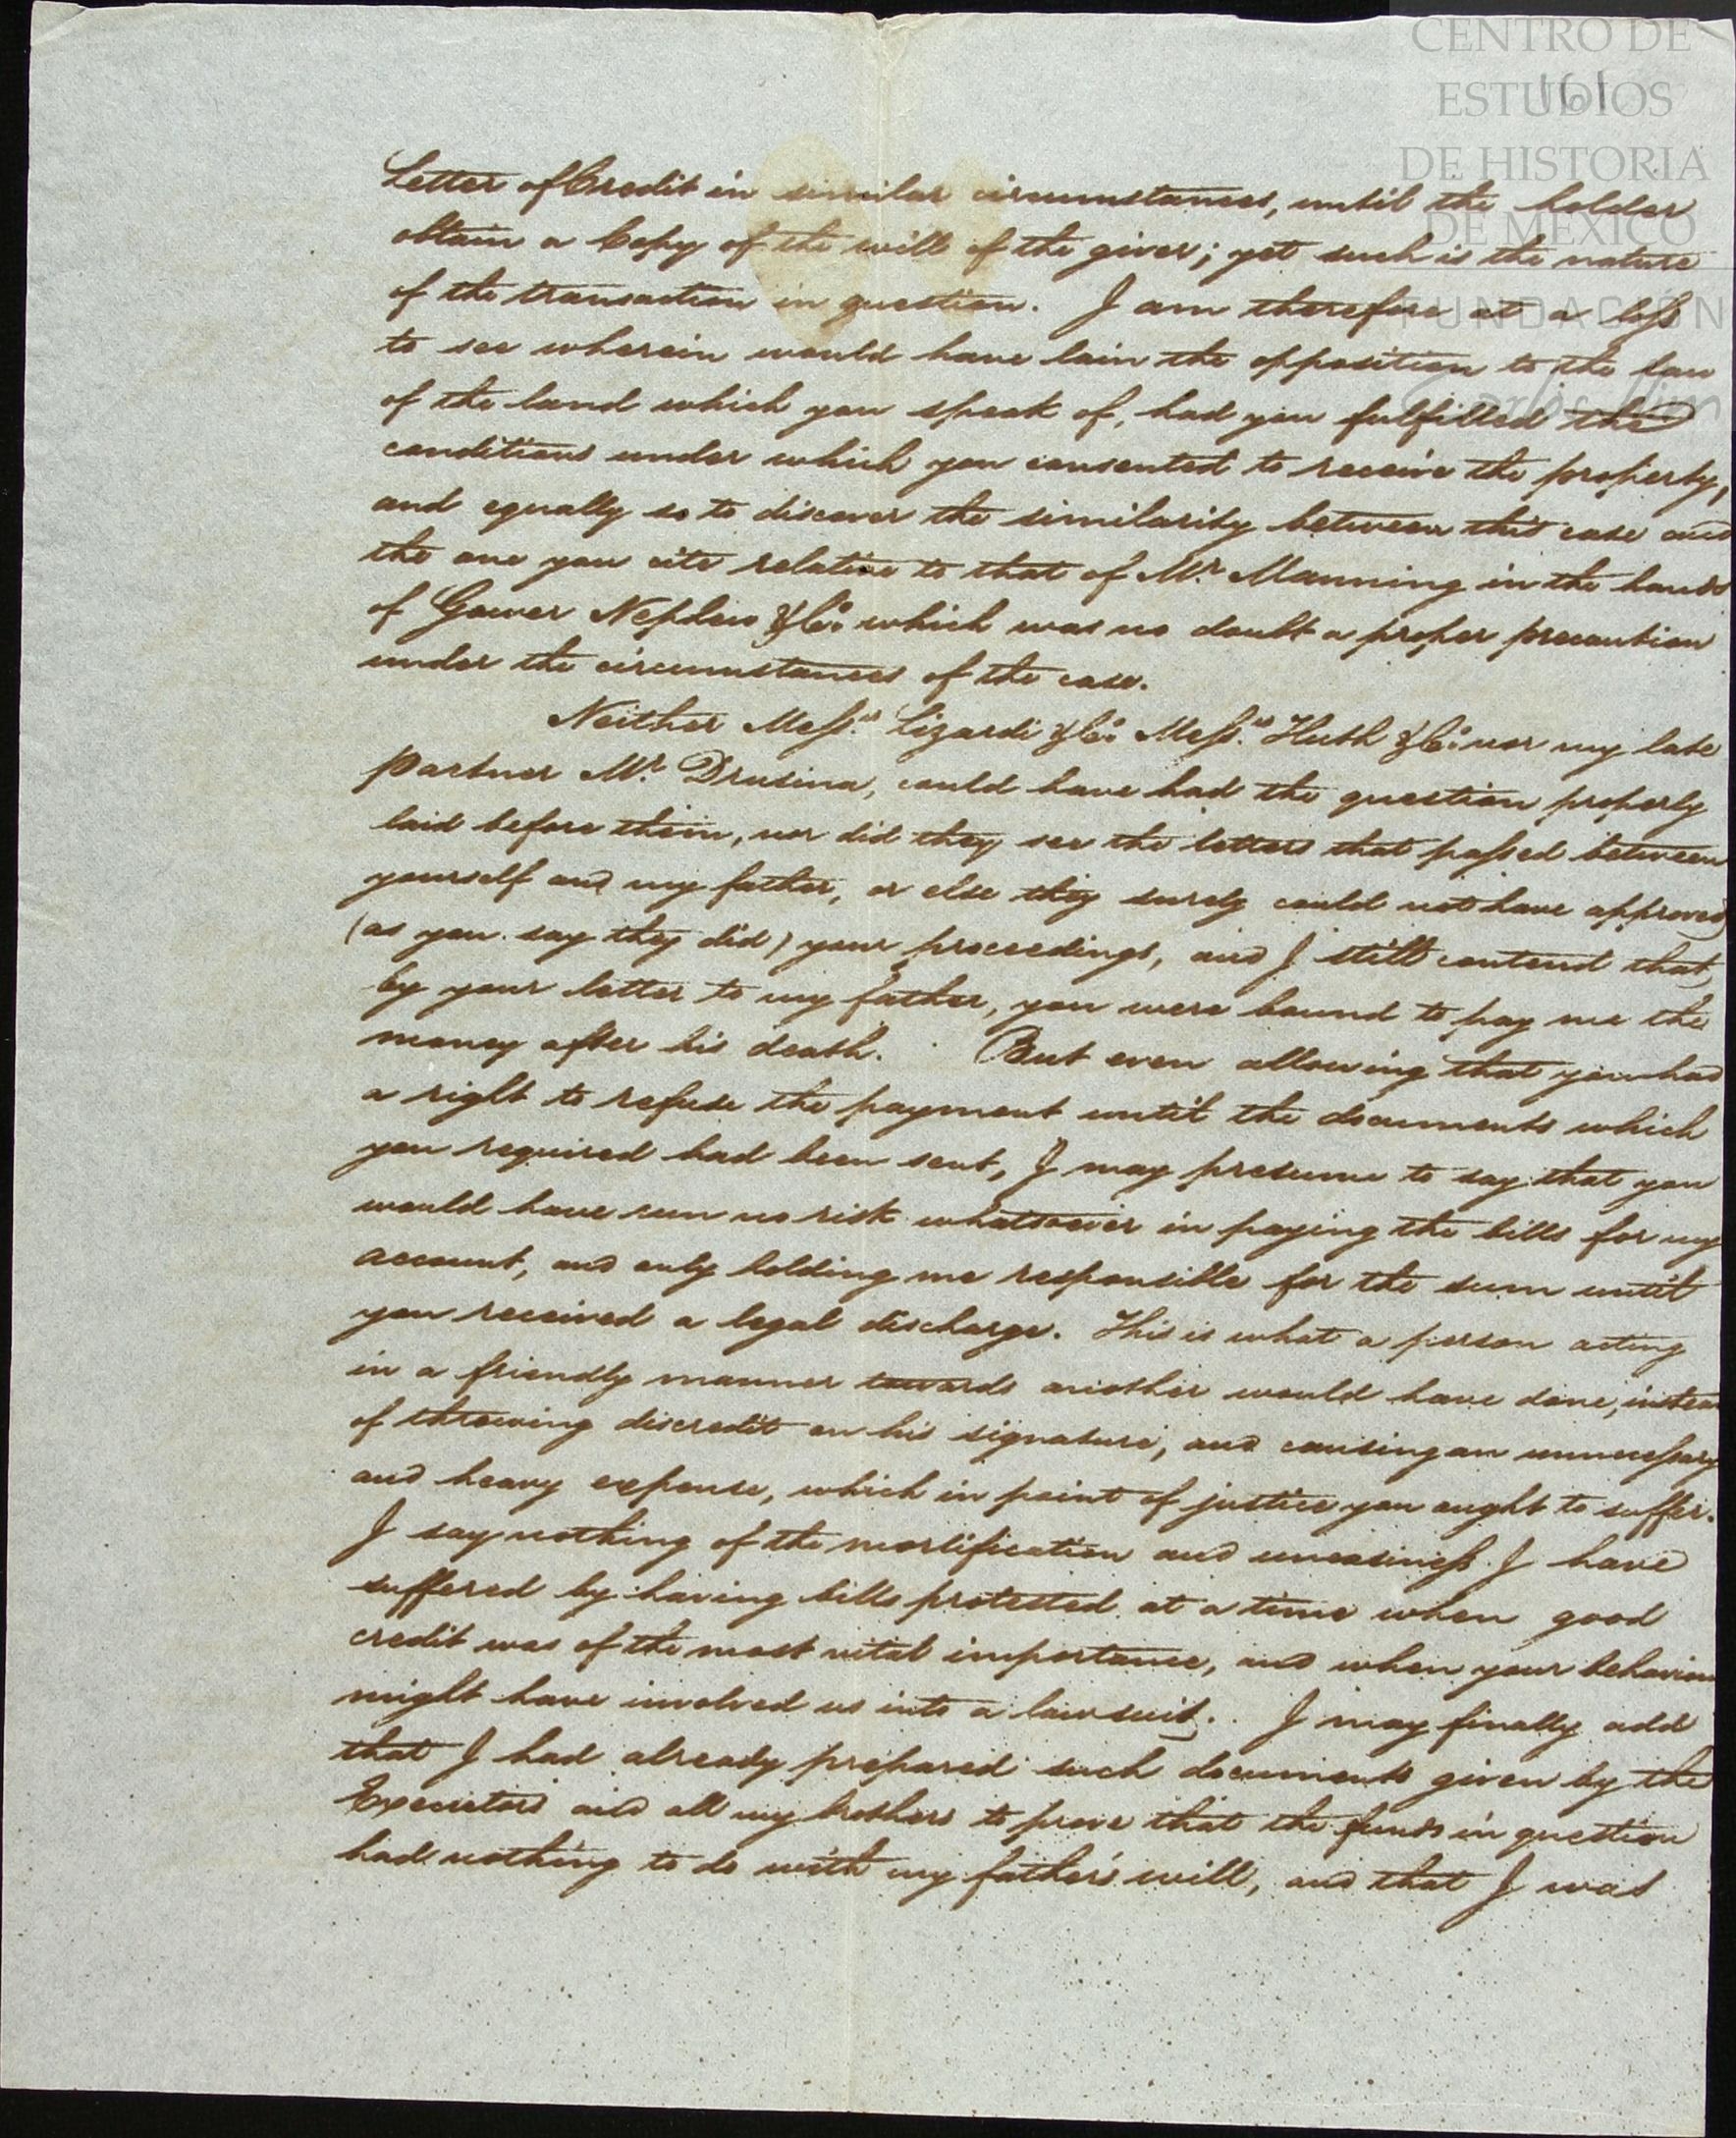 CENTRO DE
ESTUDIOS
161
DE HISTORIA
DE MEXICO
FUNDACIÓN
Carlos Slim
Letter of Credit in similar circumstances, until the holder
obtain a Copy of the will of the giver; yet such is the nature
of the transaction in question. I am therefore at a loss
to see wherein would have lain the opposition to the law
of the land which you speak of, had you fulfilled the
conditions under which you consented to receive the property,
and equally so to discover the similarity between this case and
the one you cite relative to that of Mr. Manning in the hands
of Gower Nephew & Co. which was no doubt a proper precaution
under the circumstances of the case.
Neither Messrs. Lizardi & Co. Messrs. Huth & Co. nor my late
partner Mr. Drusina, could have had the question properly
laid before them, nor did they see the letters that passed between
yourself and my father, or else they surely could not have approved
(as you say they did) your proceedings, and I still contend that,
by your letter to my father, you were bound to pay me the
money after his death. But even allowing that you had
a right to refuse the payment until the documents which
you required had been sent, I may presume to say that you
would have run no risk whatsoever in paying the bills for my
account, and only holding me responsible for the sum until
you received a legal discharge. This is what a person acting
in a friendly manner towards another would have done, instead
of throwing discredit on his signature, and causing an unnecessary
and heavy expense, which in point of justice you ought to suffer.
I say nothing of the mortification and uneasiness I have
suffered by having bills protested at a time when good
credit was of the most vital importance, and when your behaviour
might have involved us into a lawsuit. I may finally add
that I had already prepared such documents given by the
Executors and all my brothers to prove that the funds in question
had nothing to do with my father's will, and that I was